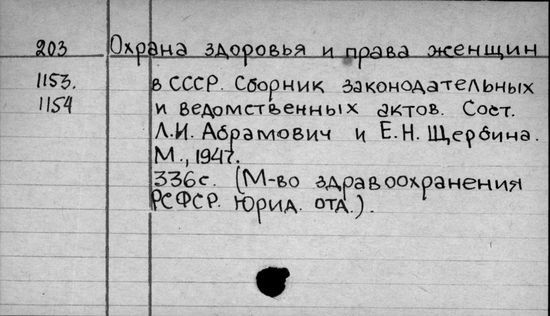 203 Охрана здоровья и права женщин
1153. в СССР. Сборник законодательных
1154 и ведомственных актов. Сост.
Л.И. Абрамович и Е.Н. Щербина.
М., 1947.
336с. (М-во здравоохранения
РСФСР. Юрид. отд.).